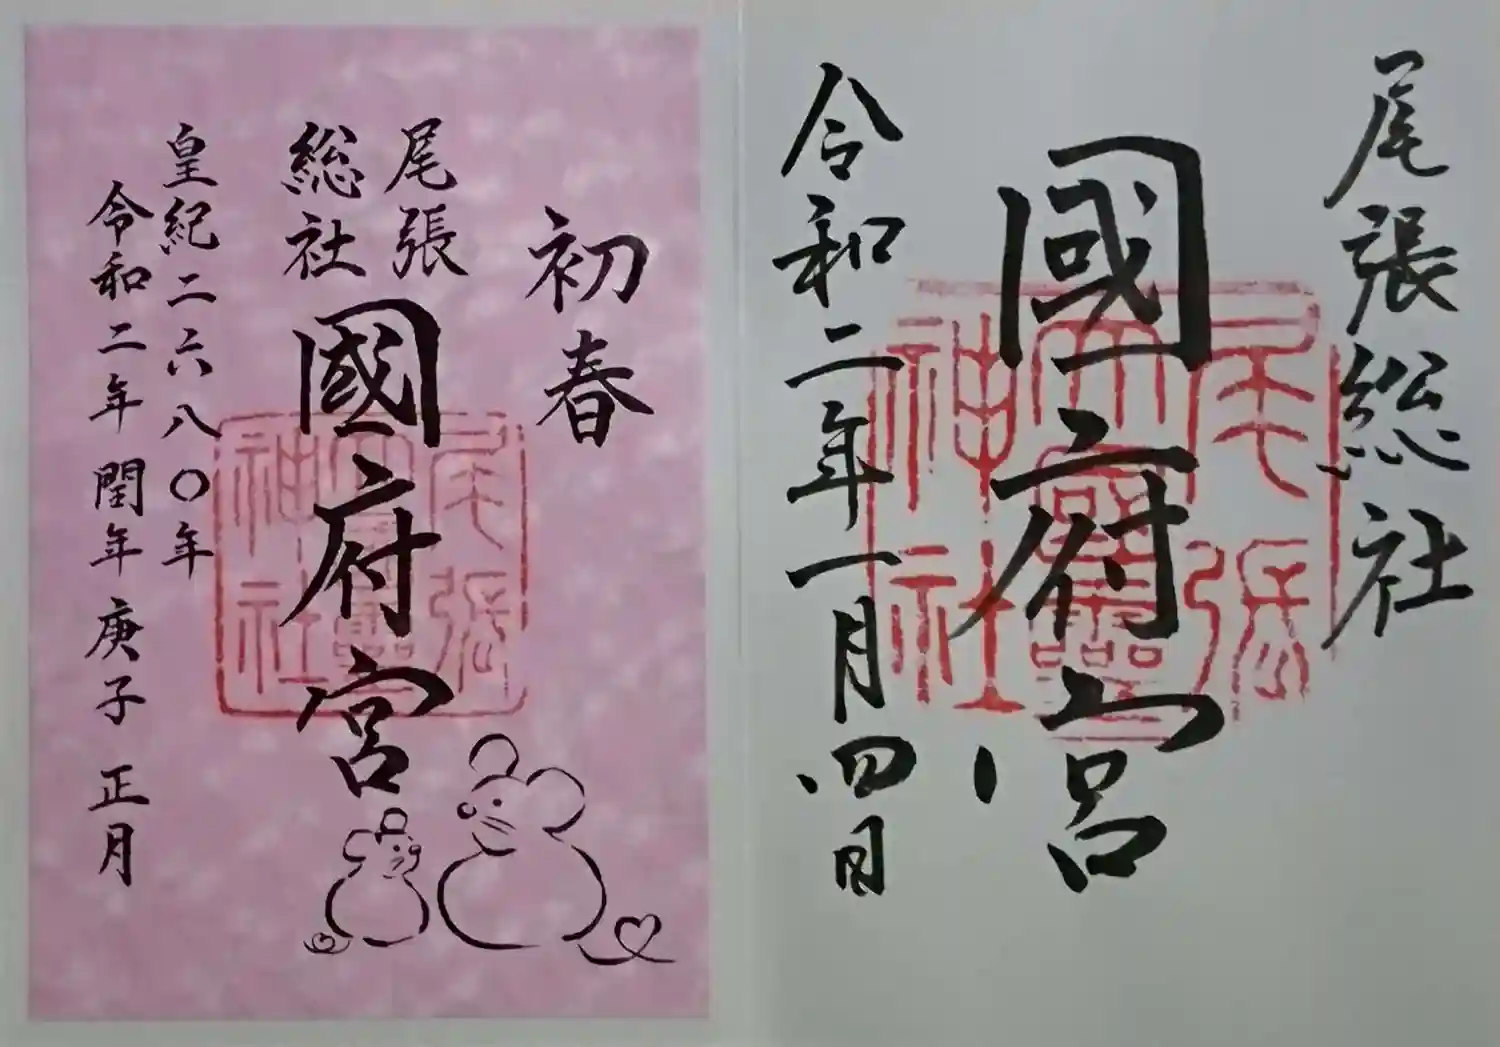 初春
尾張
総社
國府宮
皇紀二六八〇年
令和二年 閏年 庚子 正月
尾張
大國霊
神社
尾張総社
國府宮
令和二年一月四日
尾張
大國霊
神社